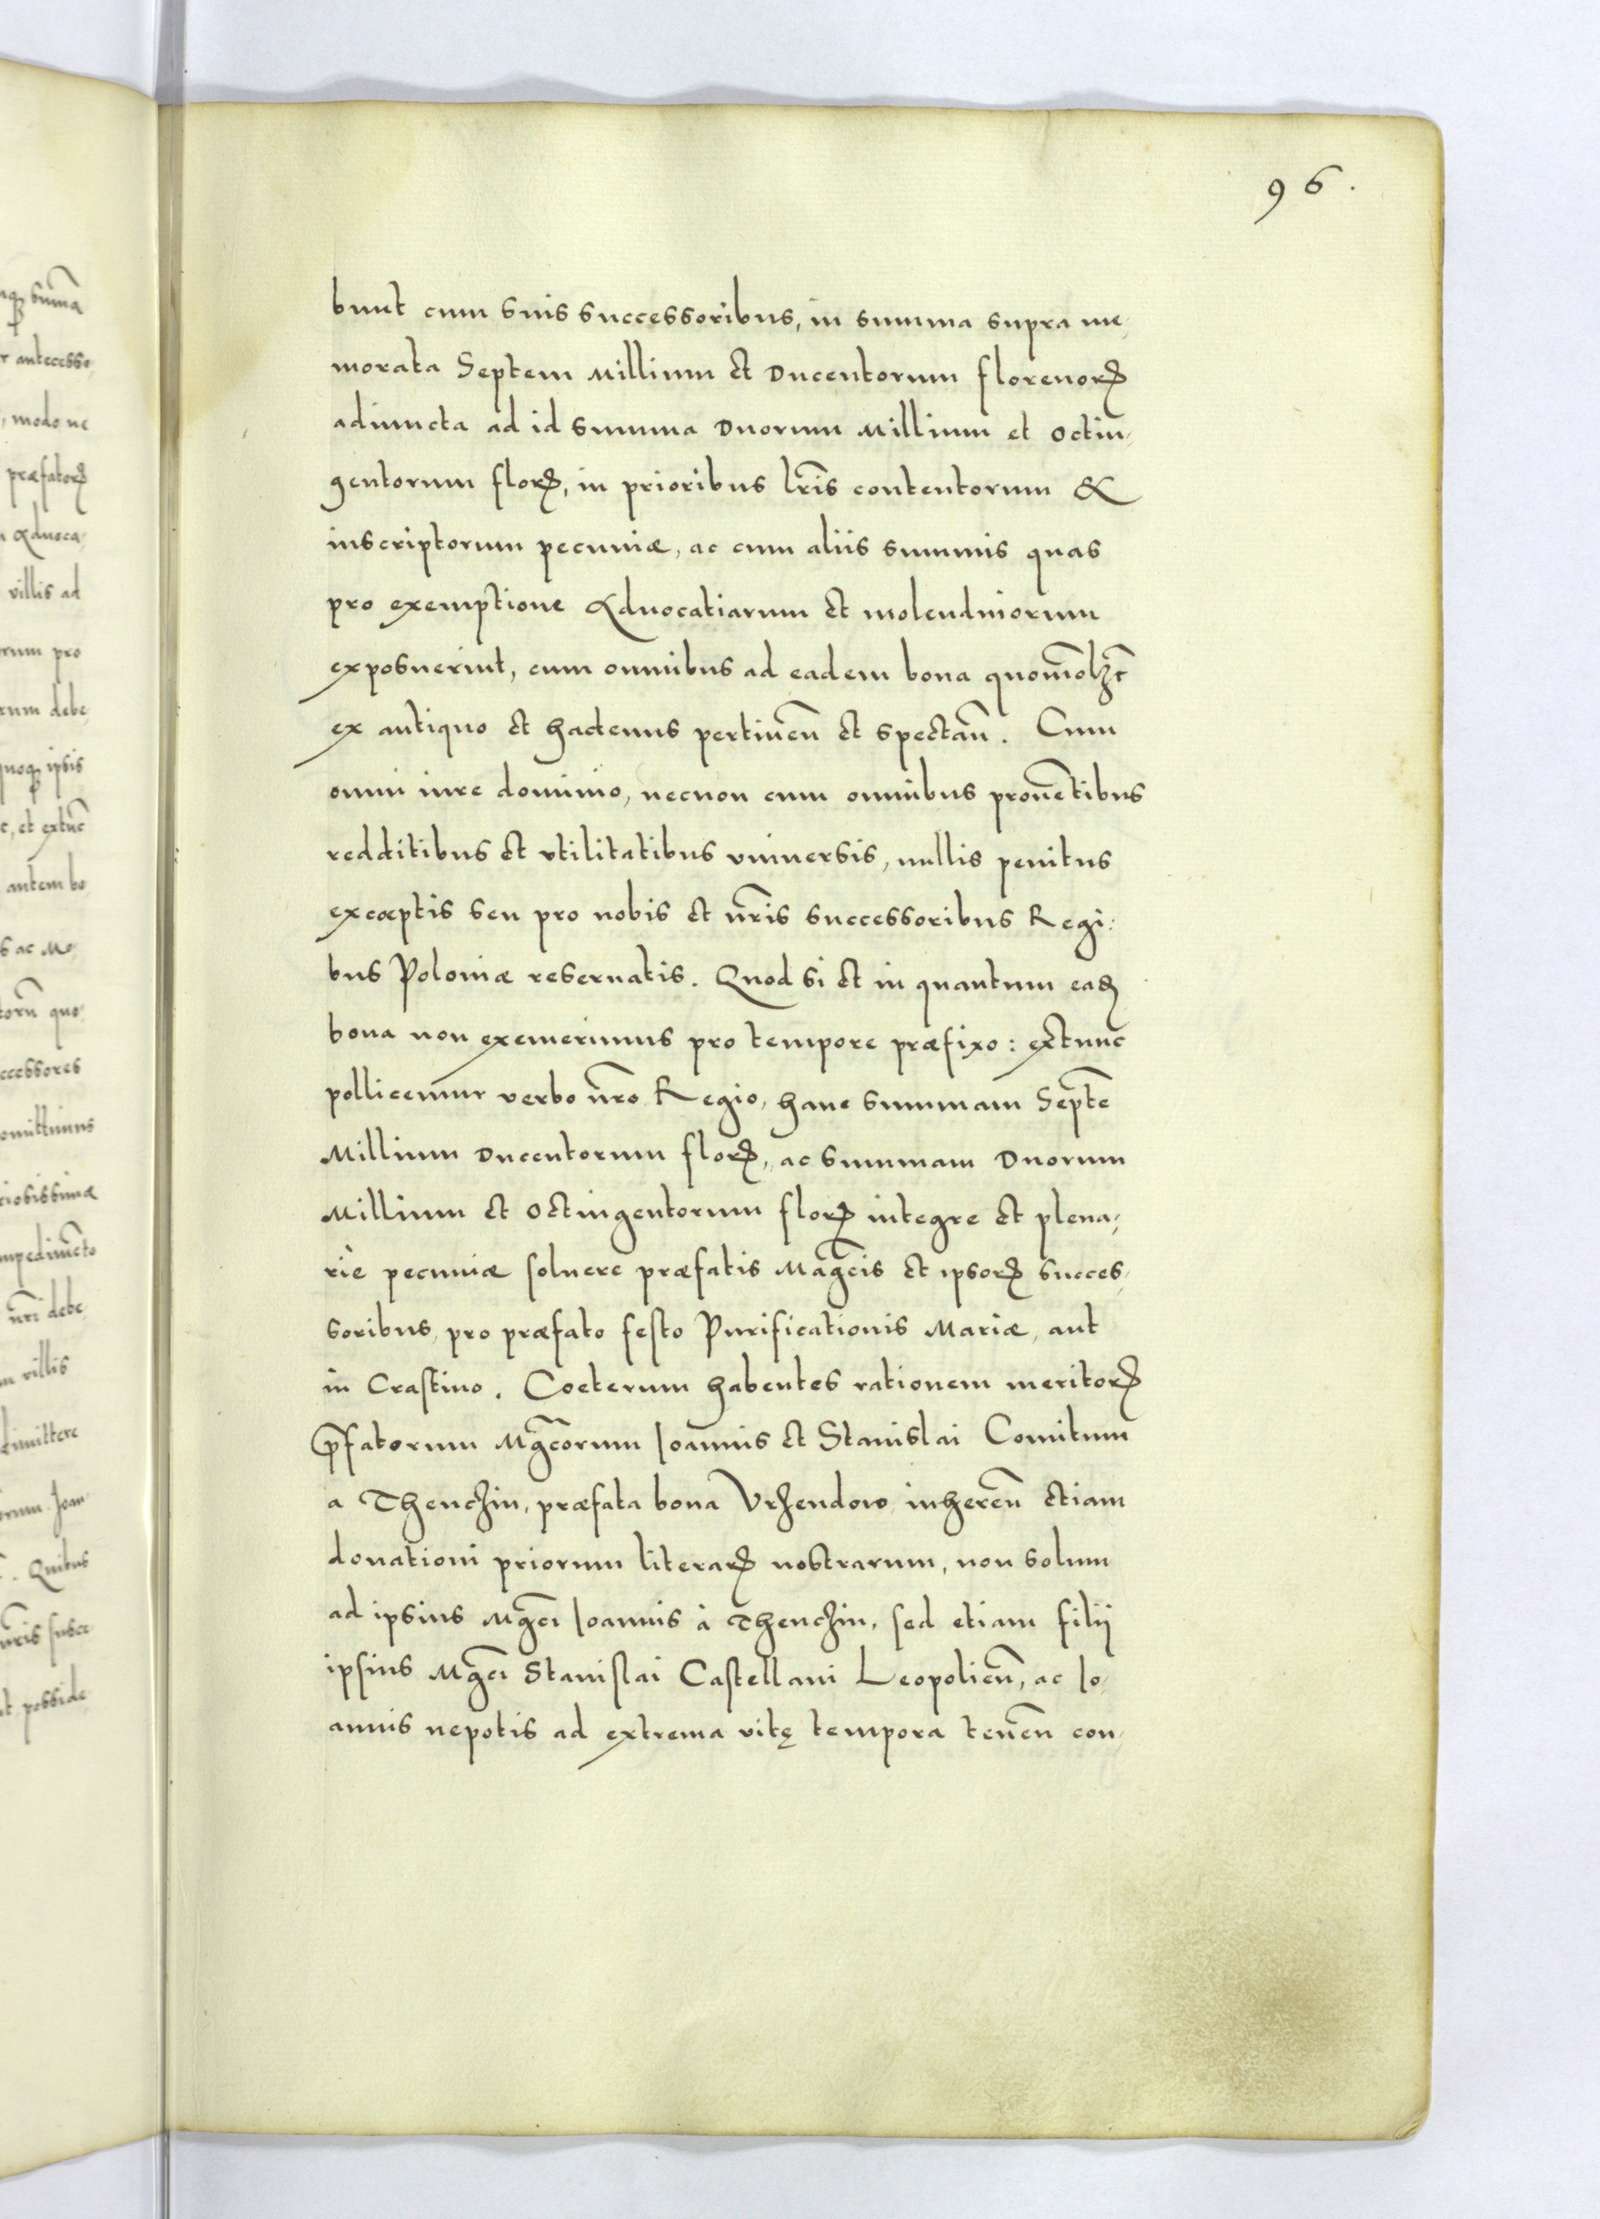 96.
bunt cum suis successoribus, in summa supra me,
morata Septem Millium et Ducentorum florenorꝝ
adiuncta ad id summa Duorum Millium et Octin,
gentorum florꝝ, in prioribus lr̃is contentorum &
inscriptorum pecuniæ, ac cum aliis summis quas
pro exemptione Aduocatiarum et molendinorum
exposuerint, cum omnibus ad eadem bona quom̃olꝫt
ex antiquo et hactenus pertineñ et spectañ. Cum
omni iure dominio, necnon cum omnibus prouẽtibus
redditibus et vtilitatibus vniuersis, nullis penitus
exceptis seu pro nobis et nr̃is successoribus Regi:
bus Poloniæ reseruatis. Quod si et in quantum eadꝫ
bona non exemerimus pro tempore præfixo: extunc
pollicemur verbo nr̃o Regio, hanc summam Septẽ
Millium Ducentorum florꝝ, ac summam Duorum
Millium et Octingentorum florꝝ integre et plena,
riè pecuniæ soluere præfatis Mag̃cis et ipsorꝝ succes,
soribus, pro præfato festo Purificationis Mariæ, aut
in Crastino. Coeterum habentes rationem meritorꝝ
p̃fatorum Mg̃corum Ioannis et Stanislai Comitum
a Thenchin, præfata bona Vrzendow inhereñ etiam
donationi priorum literarꝝ nostrarum, non solum
ad ipsius Mg̃ci Ioannis à Thenchin, sed etiam filij
ipsius Mg̃ci Stanislai Castellani Leopolieñ, ac Io,
annis nepotis ad extrema vitę tempora teneñ con,